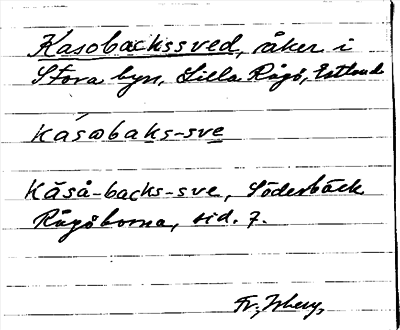 Kasobackssved, åker i
Stora byn, Lilla Rågö, Estland
kásωbaks-sve
Kăså-backs-sve, Söderbäck
Rågöborna, sid. 7.